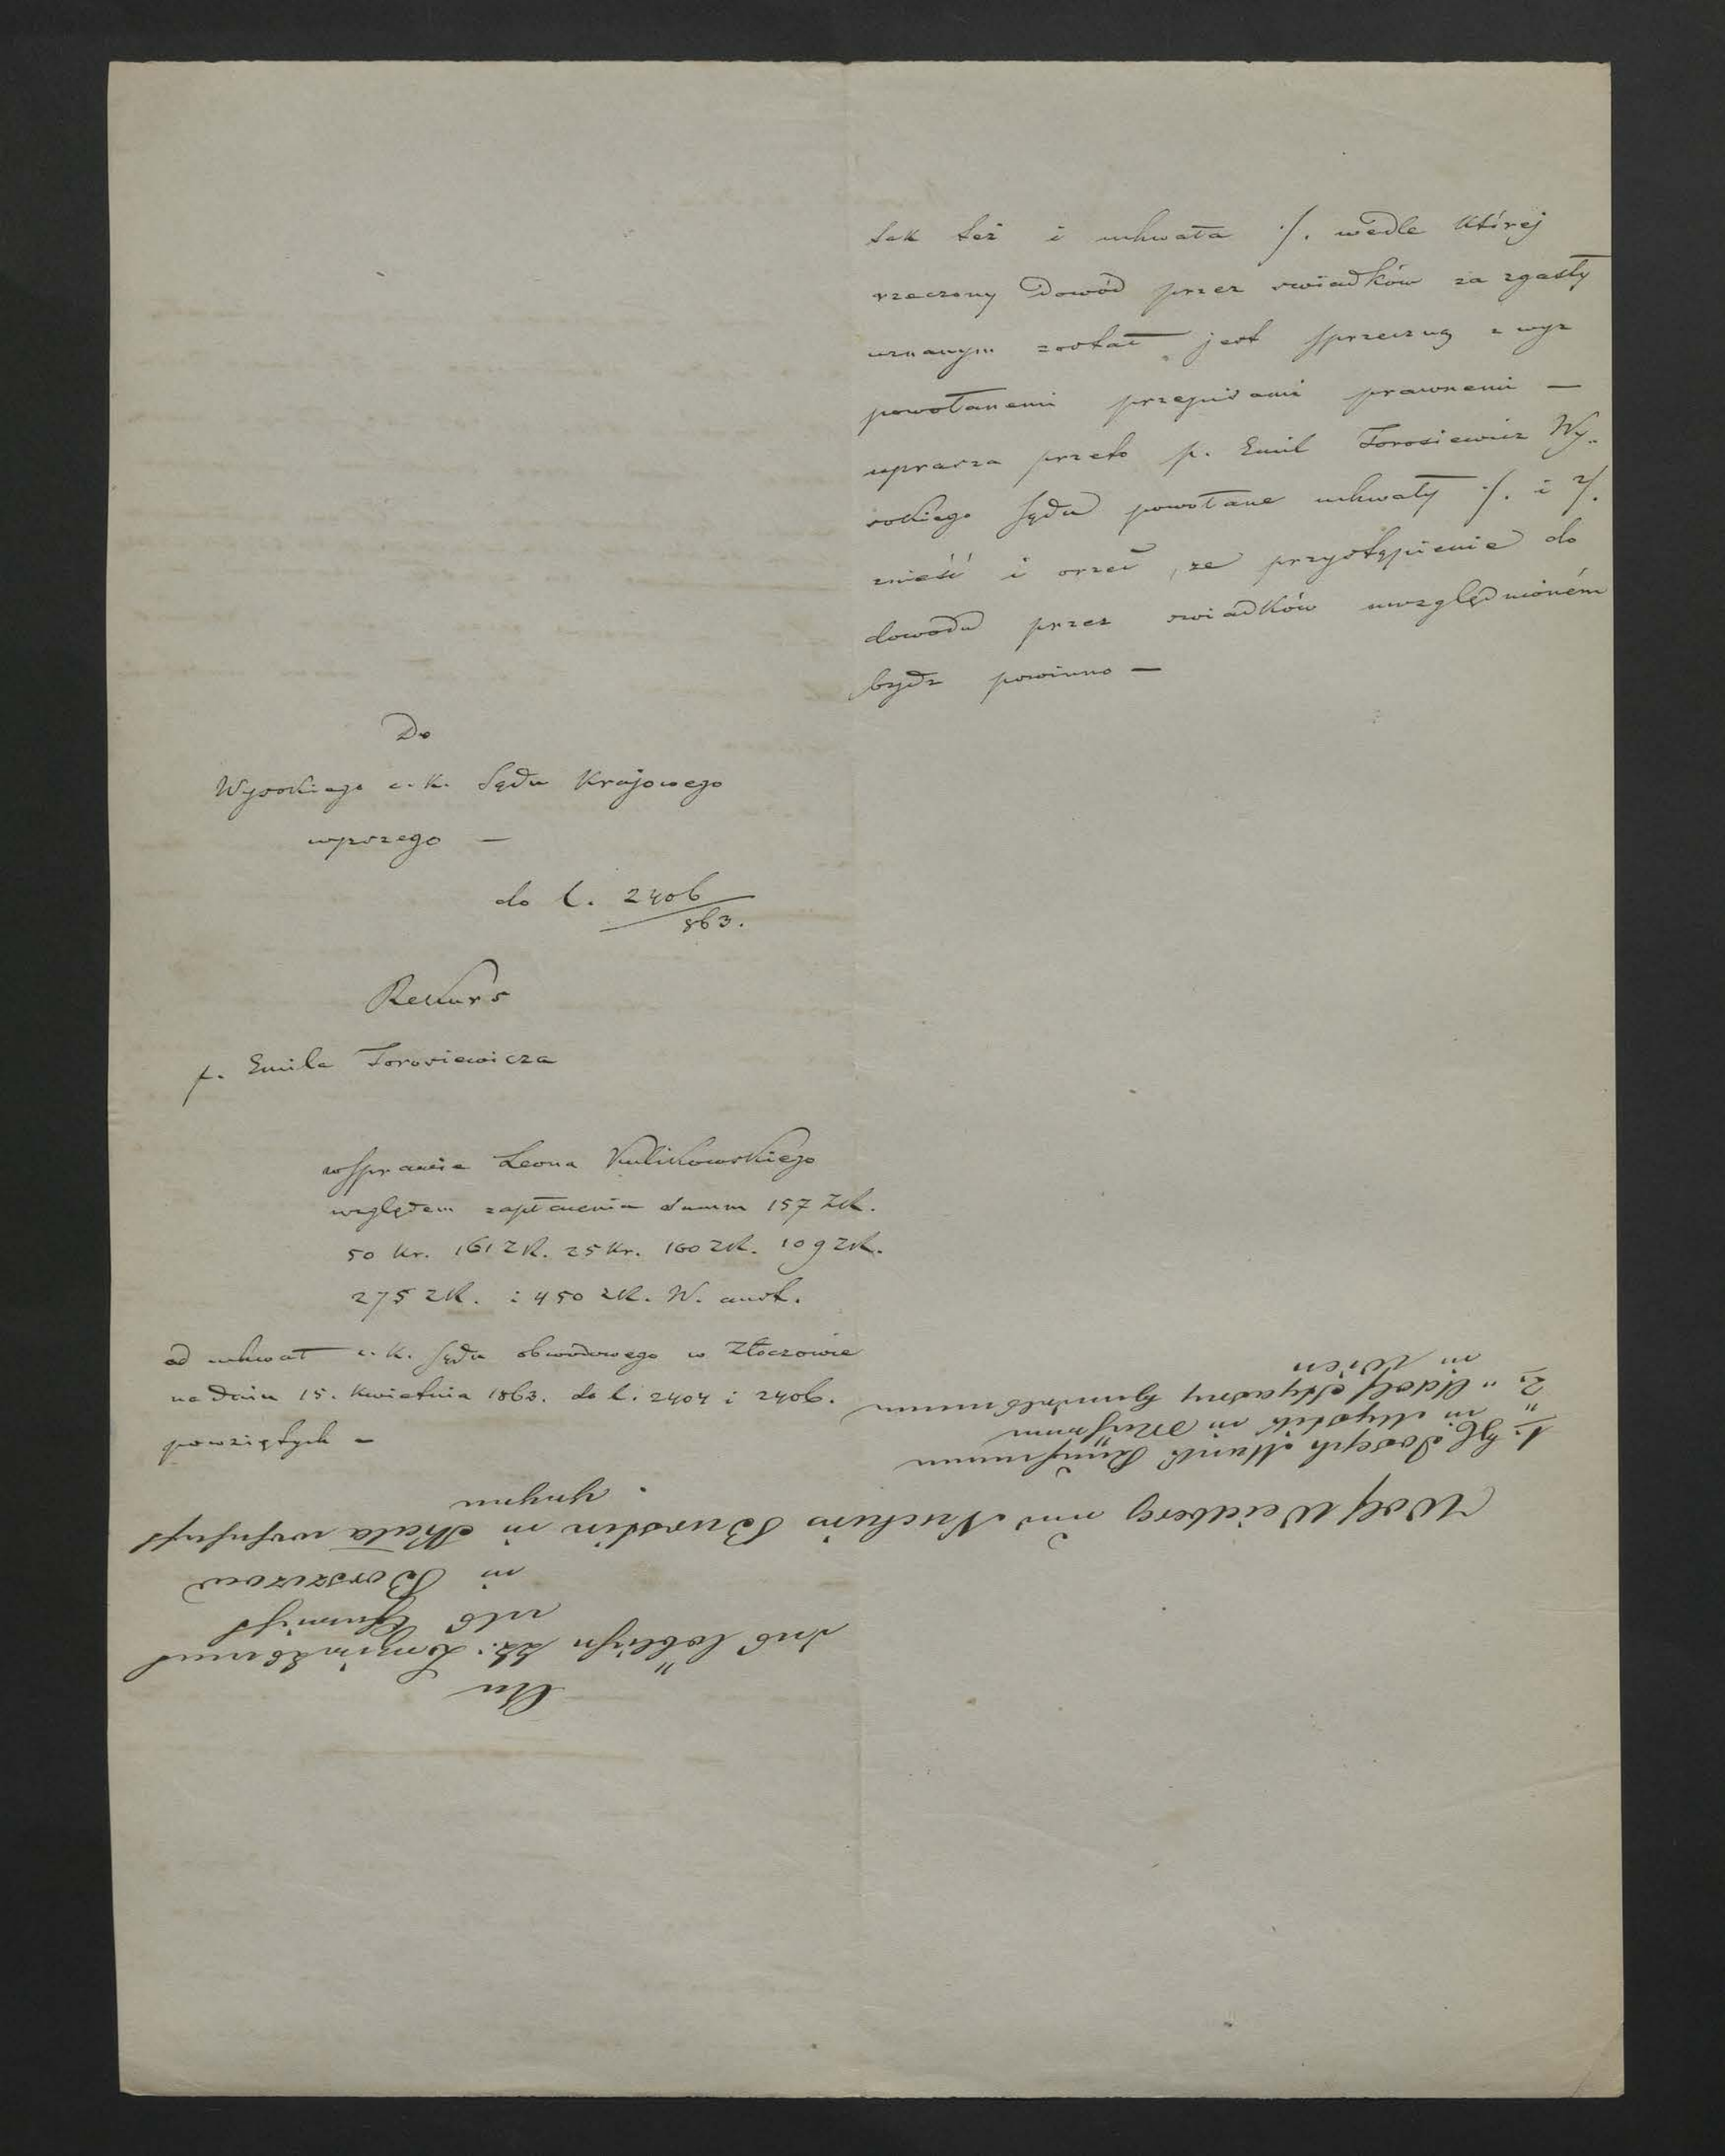 tak też i uchwała ·/. wedle której
rzeczony dowód przez swiadków za zgasły
uznanym został jest sprzeczną z wyż
powołanemi przepisami prawnemi —
uprasza przeto p. Emil Torosiewicz Wy-
sokiego Sądu powołane uchwały ·/. i 2/.
znieść i orzec, że przystąpienie do
dowodu przez swiadków uwzględnioném
bydz powinno —
Do
Wysokiego c. k. Sądu Krajowego
wyszego —
do l. 2406/863.
Rekurs
p. Emila Torosiewicza
w Sprawie Leona Kulikowskiego
względem zapłacenia summ 157 ZR.
50 kr. 161 ZR. 25 kr. 160 ZR. 109 ZR.
275 ZR. i 450 ZR. W. aust.
od uchwał c. k. Sądu obwodowego w Złoczowie
na dniu 15. Kwietnia 1863. do l. 2404 i 2406.
powziętych —
An
das löbliche kk: Bezirksamt
als Gericht
in Borszczow
Wolf Weidberg und Nuchim Burstin in Skala wohnhaft
gegen
1. Joseph Kaufmann
in Mähren
2. " Adolf Handelsmann
in Wien